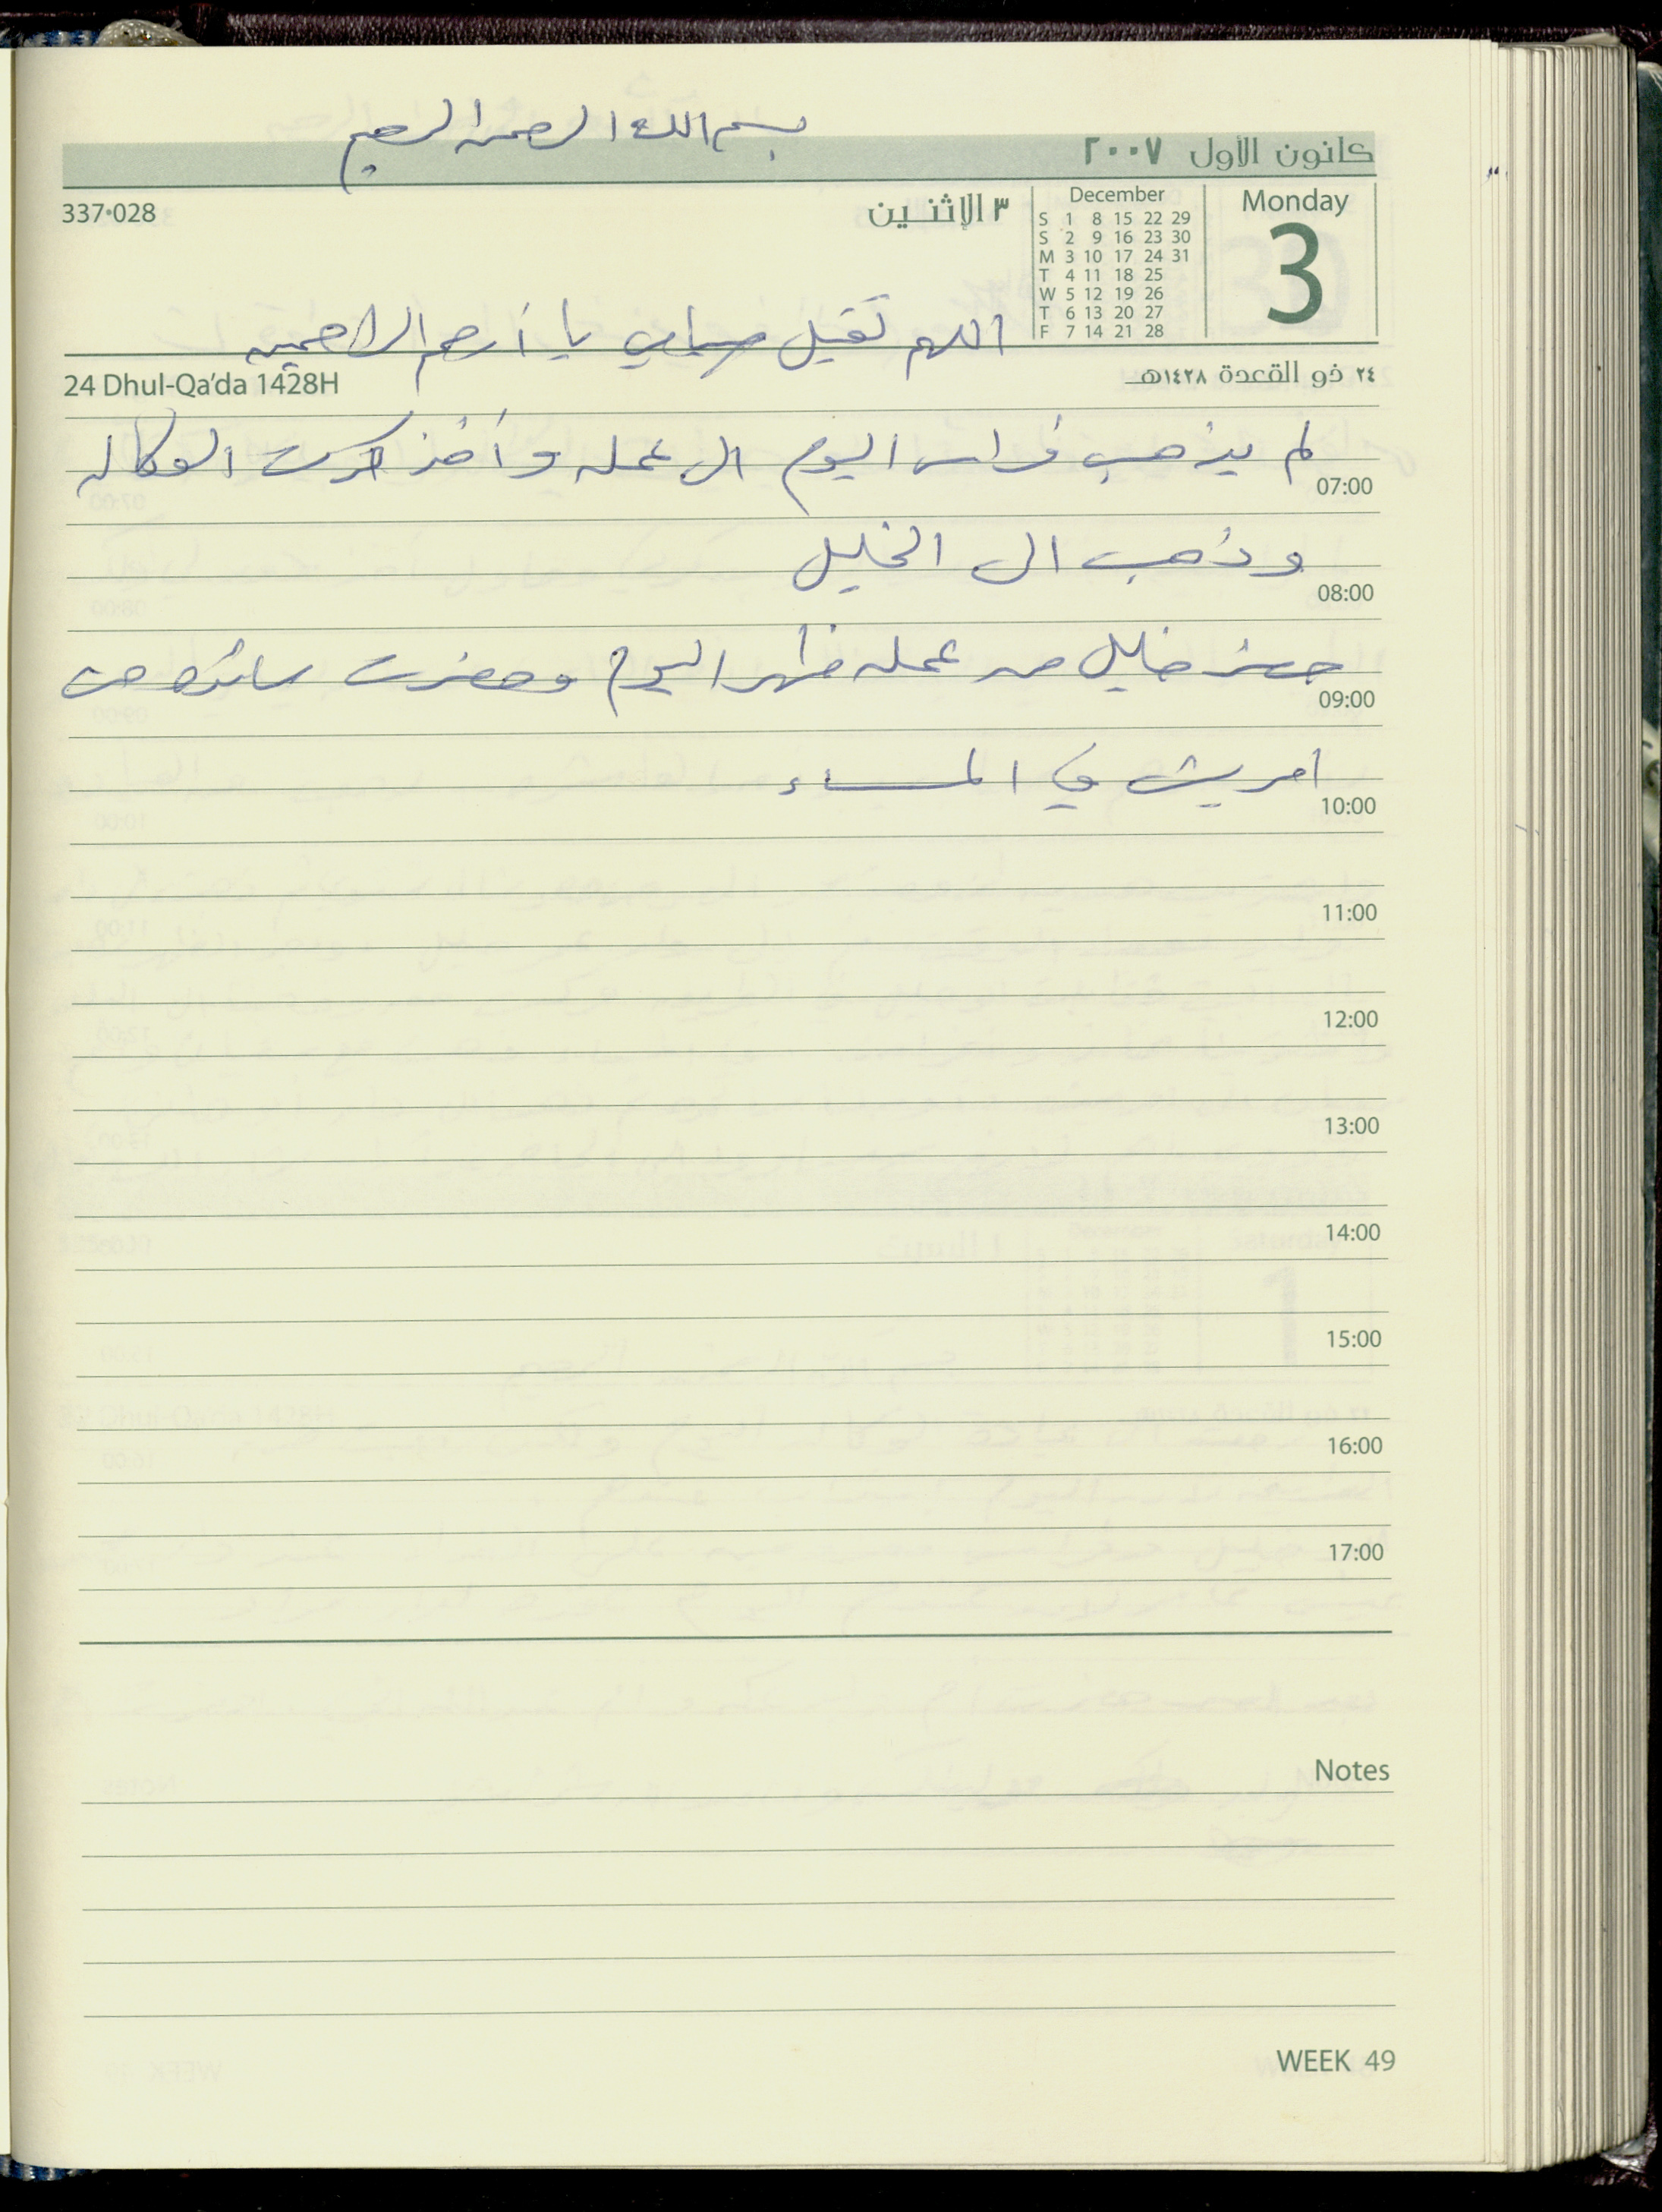 بسم الله الرحمن الرحيم
كانون الأول ٢٠٠٧
Monday
3
December
S 1 8 15 22 29
S 2 9 16 23 30
M 3 10 17 24 31
T 4 11 18 25
W 5 12 19 26
T 6 13 20 27
F 7 14 21 28
٣ الإثنين
337·028
اللهم تقبل صيامي يا أرحم الراحمين
٢٤ ذو القعدة ١٤٢٨هـ
24 Dhul-Qa'da 1428H
لم يذهب فراس اليوم الى عمله وأخذ كرت الوكاله
07:00
وذهب الى الخليل
08:00
حضر خليل من عمله ظهر اليوم وحضرت من
09:00
امريش في المساء
10:00
11:00
12:00
13:00
14:00
15:00
16:00
17:00
Notes
WEEK 49